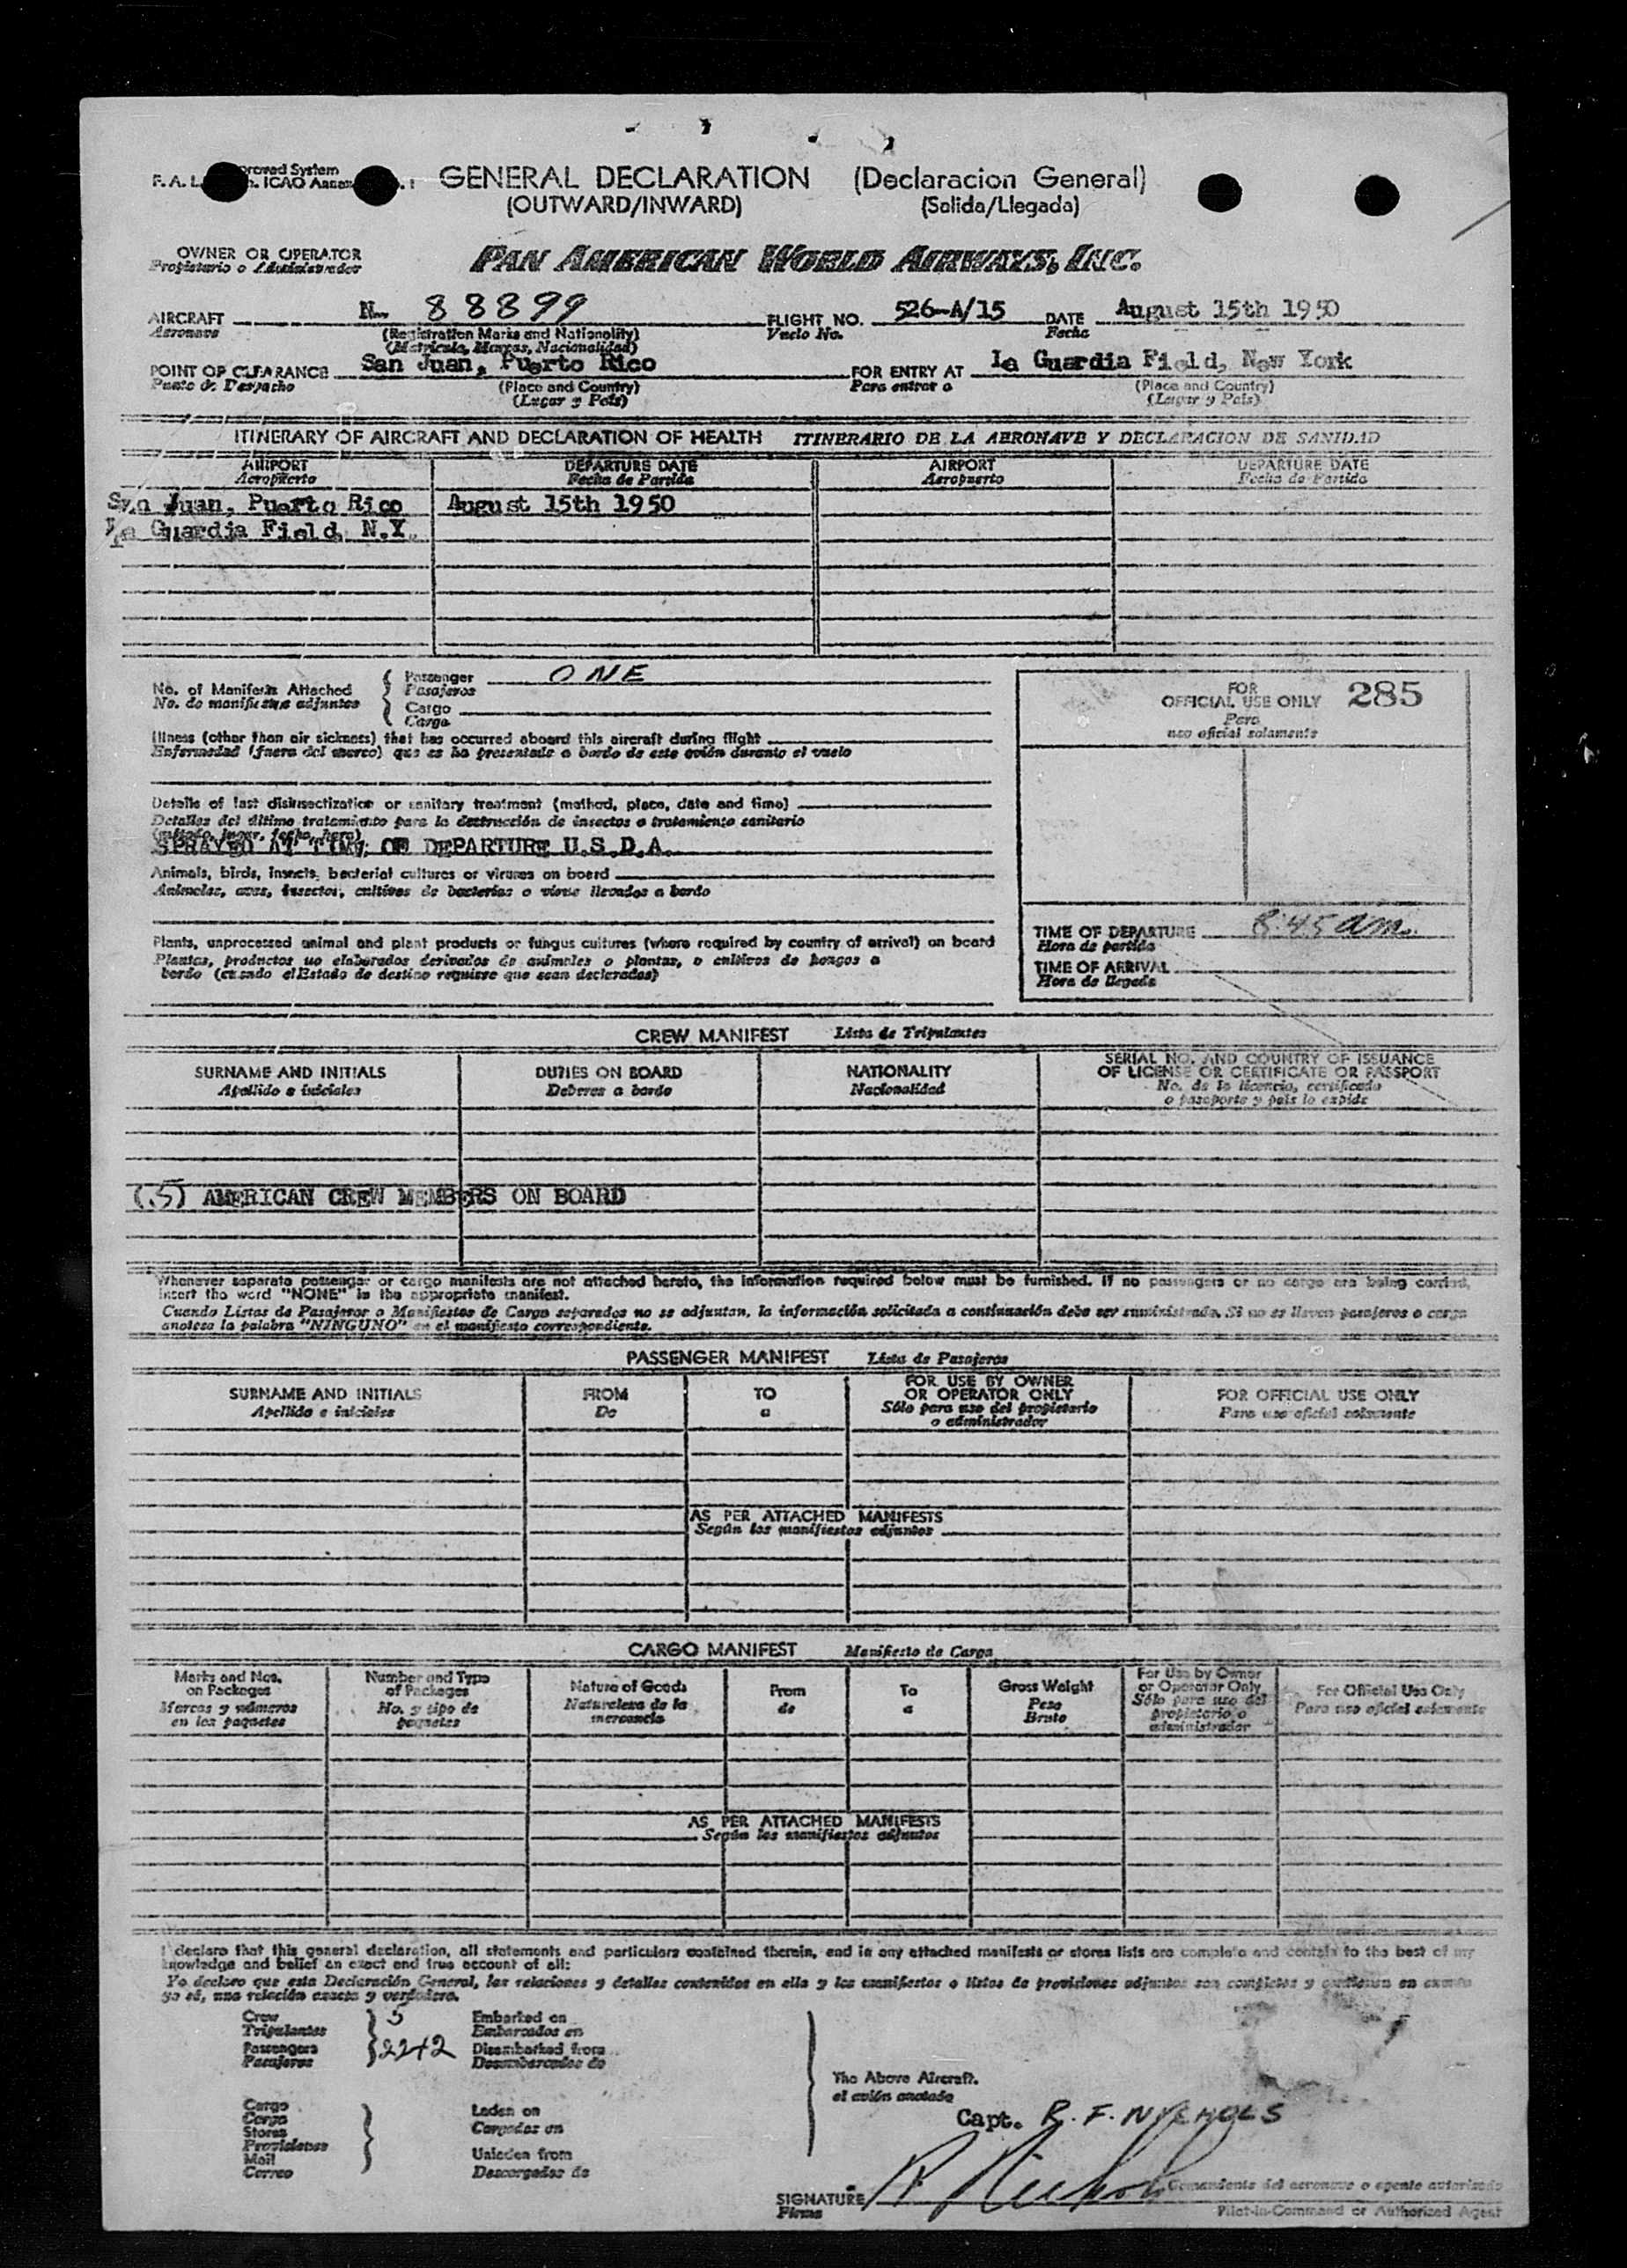 GENERAL DECLARATION (Declaracion General)
(OUTWARD/INWARD) (Salida/Llegada)
OWNER OR OPERATOR
Propietario o Administrador
PAN AMERICAN WORLD AIRWAYS, INC.
AIRCRAFT N 88899 FLIGHT NO. 526-A/15 DATE August 15th 1950
Aeronave (Registration Marks and Nationality) Vuelo No. Fecha
(Matricula, Marcas, Nacionalidad)
POINT OF CLEARANCE San Juan, Puerto Rico FOR ENTRY AT La Guardia Field, New York
Punto de Despacho (Place and Country) Para entrar a (Place and Country)
(Lugar y País) (Lugar y País)
ITINERARY OF AIRCRAFT AND DECLARATION OF HEALTH ITINERARIO DE LA AERONAVE Y DECLARACION DE SANIDAD
AIRPORT DEPARTURE DATE AIRPORT DEPARTURE DATE
Aeropuerto Fecha de Partida Aeropuerto Fecha de Partida
San Juan, Puerto Rico August 15th 1950
La Guardia Field, N.Y.
No. of Manifests Attached Passenger ONE
No. de manifiestos adjuntos Pasajeros
Cargo
Carga
FOR
OFFICIAL USE ONLY 285
Para
uso oficial solamente
Illness (other than air sickness) that has occurred aboard this aircraft during flight
Enfermedad (fuera del mareo) que se ha presentado a bordo de este avión durante el vuelo
Details of last disinsectization or sanitary treatment (method, place, date and time)
Detalles del último tratamiento para la destrucción de insectos o tratamiento sanitario
(método, lugar, fecha, hora)
SPRAYED AT TIME OF DEPARTURE U.S.D.A.
Animals, birds, insects, bacterial cultures or viruses on board
Animales, aves, insectos, cultivos de bacterias o virus llevados a bordo
Plants, unprocessed animal and plant products or fungus cultures (where required by country of arrival) on board
Plantas, productos no elaborados derivados de animales o plantas, o cultivos de hongos a
bordo (cuando el Estado de destino requiere que sean declarados)
TIME OF DEPARTURE 8:45 am.
Hora de partida
TIME OF ARRIVAL
Hora de llegada
CREW MANIFEST Lista de Tripulantes
SURNAME AND INITIALS DUTIES ON BOARD NATIONALITY SERIAL NO. AND COUNTRY OF ISSUANCE
OF LICENSE OR CERTIFICATE OR PASSPORT
Apellido e iniciales Deberes a bordo Nacionalidad No. de la licencia, certificado
o pasaporte y país lo expide
(5) AMERICAN CREW MEMBERS ON BOARD
Whenever separate passenger or cargo manifests are not attached hereto, the information required below must be furnished. If no passengers or no cargo are being carried,
insert the word "NONE" in the appropriate manifest.
Cuando Listas de Pasajeros o Manifiestos de Carga separados no se adjuntan, la información solicitada a continuación debe ser suministrada. Si no se llevan pasajeros o carga
anotese la palabra "NINGUNO" en el manifiesto correspondiente.
PASSENGER MANIFEST Lista de Pasajeros
SURNAME AND INITIALS FROM TO FOR USE BY OWNER
OR OPERATOR ONLY FOR OFFICIAL USE ONLY
Apellido e iniciales De a Sólo para uso del propietario
o administrador Para uso oficial solamente
AS PER ATTACHED MANIFESTS
Según los manifiestos adjuntos
CARGO MANIFEST Manifiesto de Carga
Marks and Nos.
on Packages
Marcas y números
en los paquetes
Number and Type
of Packages
No. y tipo de
paquetes
Nature of Goods
Naturaleza de la
mercancía
From
de
To
a
Gross Weight
Peso
Bruto
For Use by Owner
or Operator Only
Sólo para uso del
propietario o
administrador
For Official Use Only
Para uso oficial solamente
AS PER ATTACHED MANIFESTS
Según los manifiestos adjuntos
I declare that this general declaration, all statements and particulars contained therein, and in any attached manifests or stores lists are complete and contain to the best of my
knowledge and belief an exact and true account of all:
Yo declaro que esta Declaración General, las relaciones y detalles contenidos en ella y los manifiestos o listas de provisiones adjuntos son completos y
yo sé, una relación exacta y verdadera.
Crew 5 Embarked on
Tripulantes Embarcados en
Passengers Disembarked from
Pasajeros Desembarcados de
The Above Aircraft.
el avión anotado
Cargo
Carga
Stores
Provisiones
Mail
Correo
Laden on
Cargados en
Unladen from
Descargados de
Capt. R. F. NICHOLS
SIGNATURE R Nichols
Firma
Comandante del aeronave o agente autorizado
Pilot-in-Command or Authorized Agent